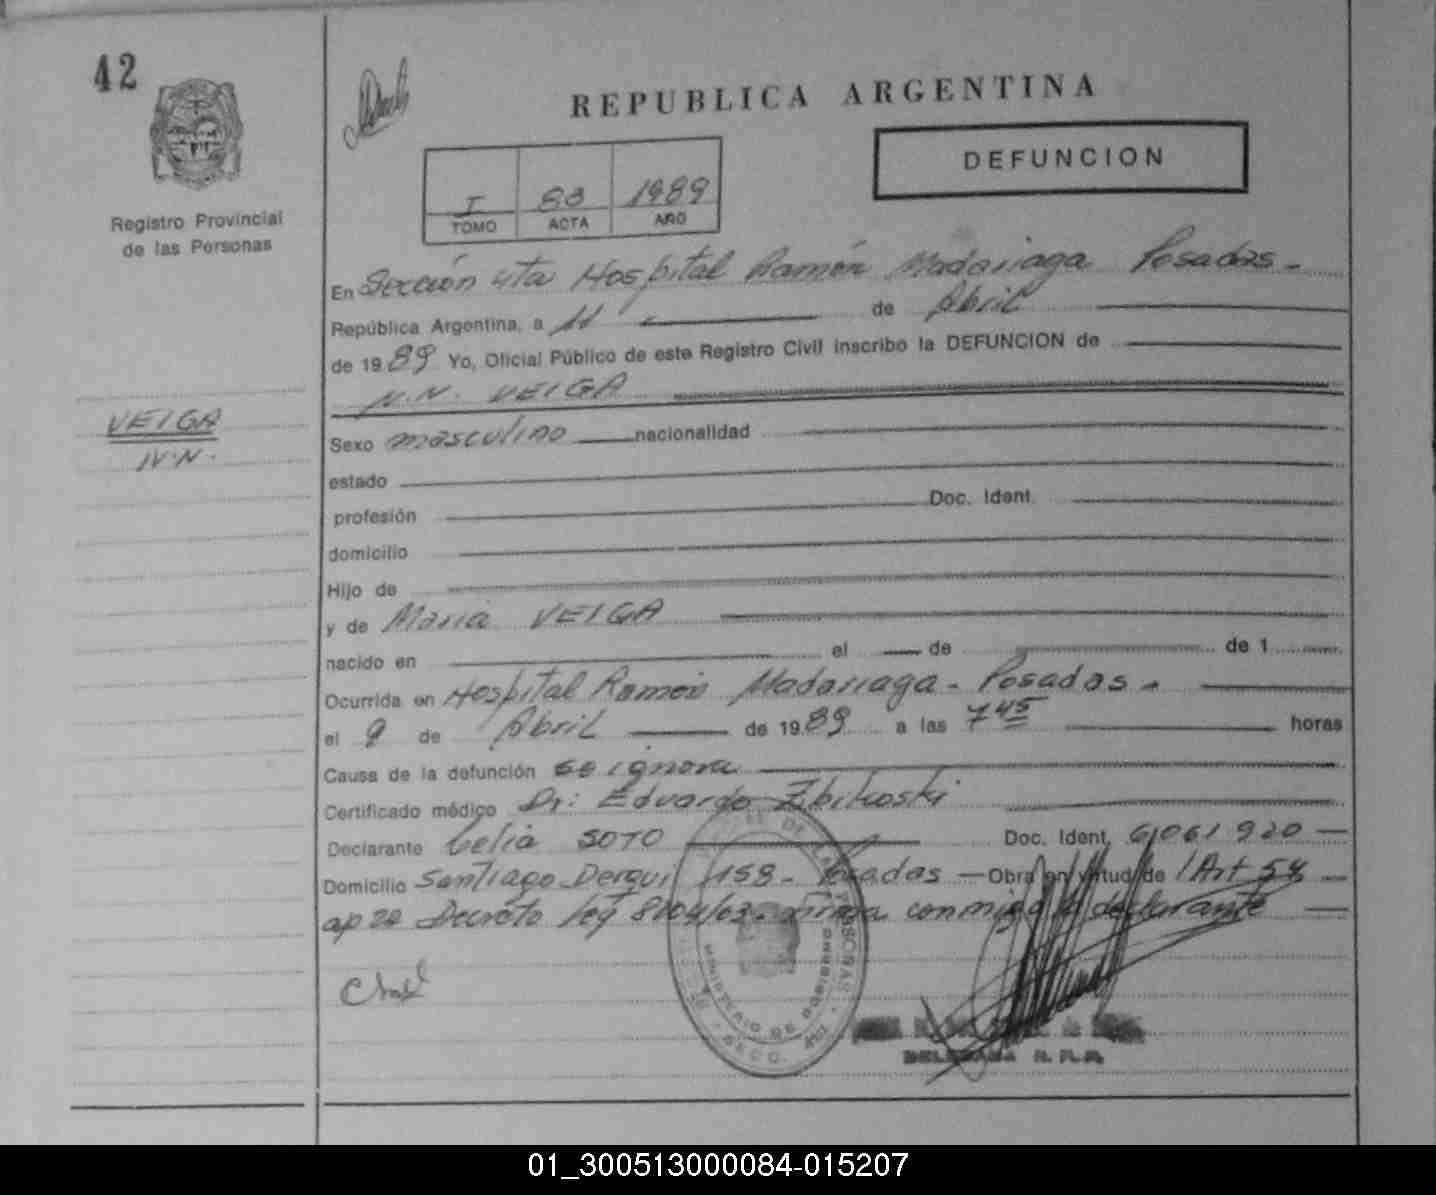 42
REPUBLICA ARGENTINA
DEFUNCION
I 83 1989
TOMO ACTA AÑO
Registro Provincial
de las Personas
En Sección 4ta Hospital Ramón Madariaga Posadas -
República Argentina, a 11 de Abril
de 1989 Yo, Oficial Público de este Registro Civil inscribo la DEFUNCION de
N.N. VEIGA
VEIGA
N.N.
Sexo masculino nacionalidad
estado
profesión Doc. Ident.
domicilio
Hijo de
y de Maria VEIGA
nacido en el de de 1
Ocurrida en Hospital Ramón Madariaga - Posadas -
el 9 de Abril de 1989 a las 7 45 horas
Causa de la defunción se ignora
Certificado médico Dr: Eduardo Zbikoski
Declarante Celia SOTO Doc. Ident. 6061920
Domicilio Santiago Derqui 1158 - Posadas Obra en virtud de /Art 54
ap 2º Decreto Ley 8204/63 - firma conmigo la declarante
DE LAS PERSONAS
MINISTERIO DE GOBIERNO
SECC. 4ta
DELEGADA R.P.P.
01_300513000084-015207